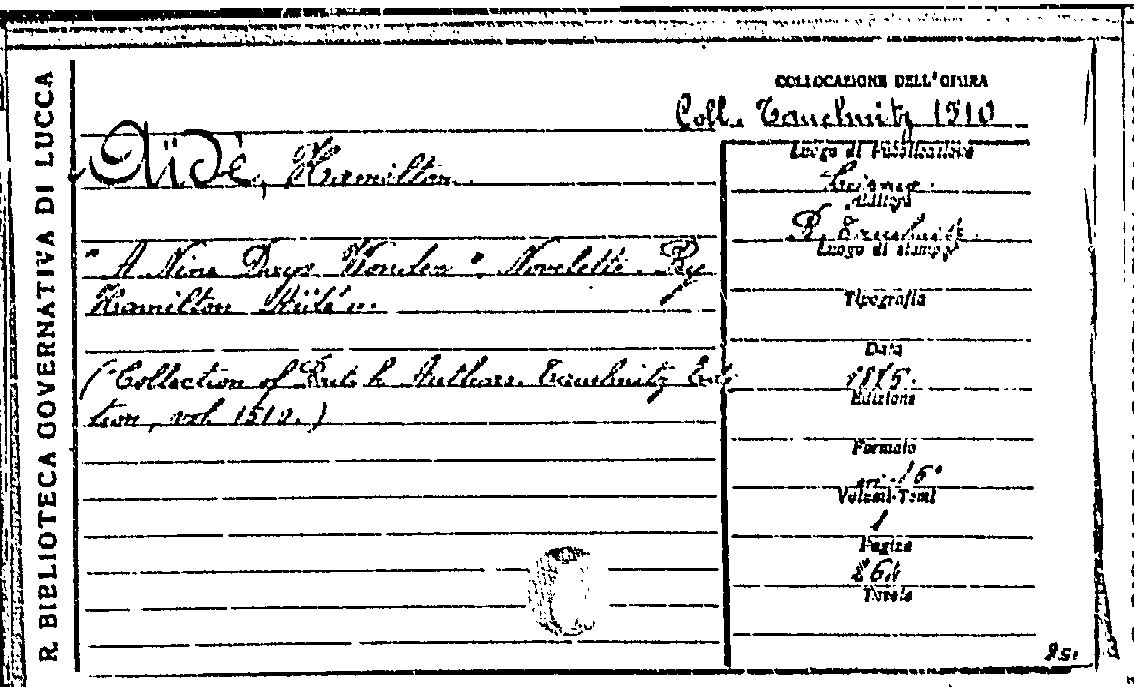 R. BIBLIOTECA GOVERNATIVA DI LUCCA
COLLOCAZIONE DELL'OPERA
Coll. Tauchnitz 1510
Aïdé, Hamilton.
"A Nine Days Wonder". Novelette. By
Hamilton Aïdé.
(Collection of Authors Tauchnitz Edi
tion, vol. 1510.)
Luogo di Pubblicazione
Editore
B. Tauchnitz
Luogo di stampa
Tipografia
Data
1875.
Edizione
Formato
in-16°
Volumi-Tomi
1
Pagine
264
Tavole